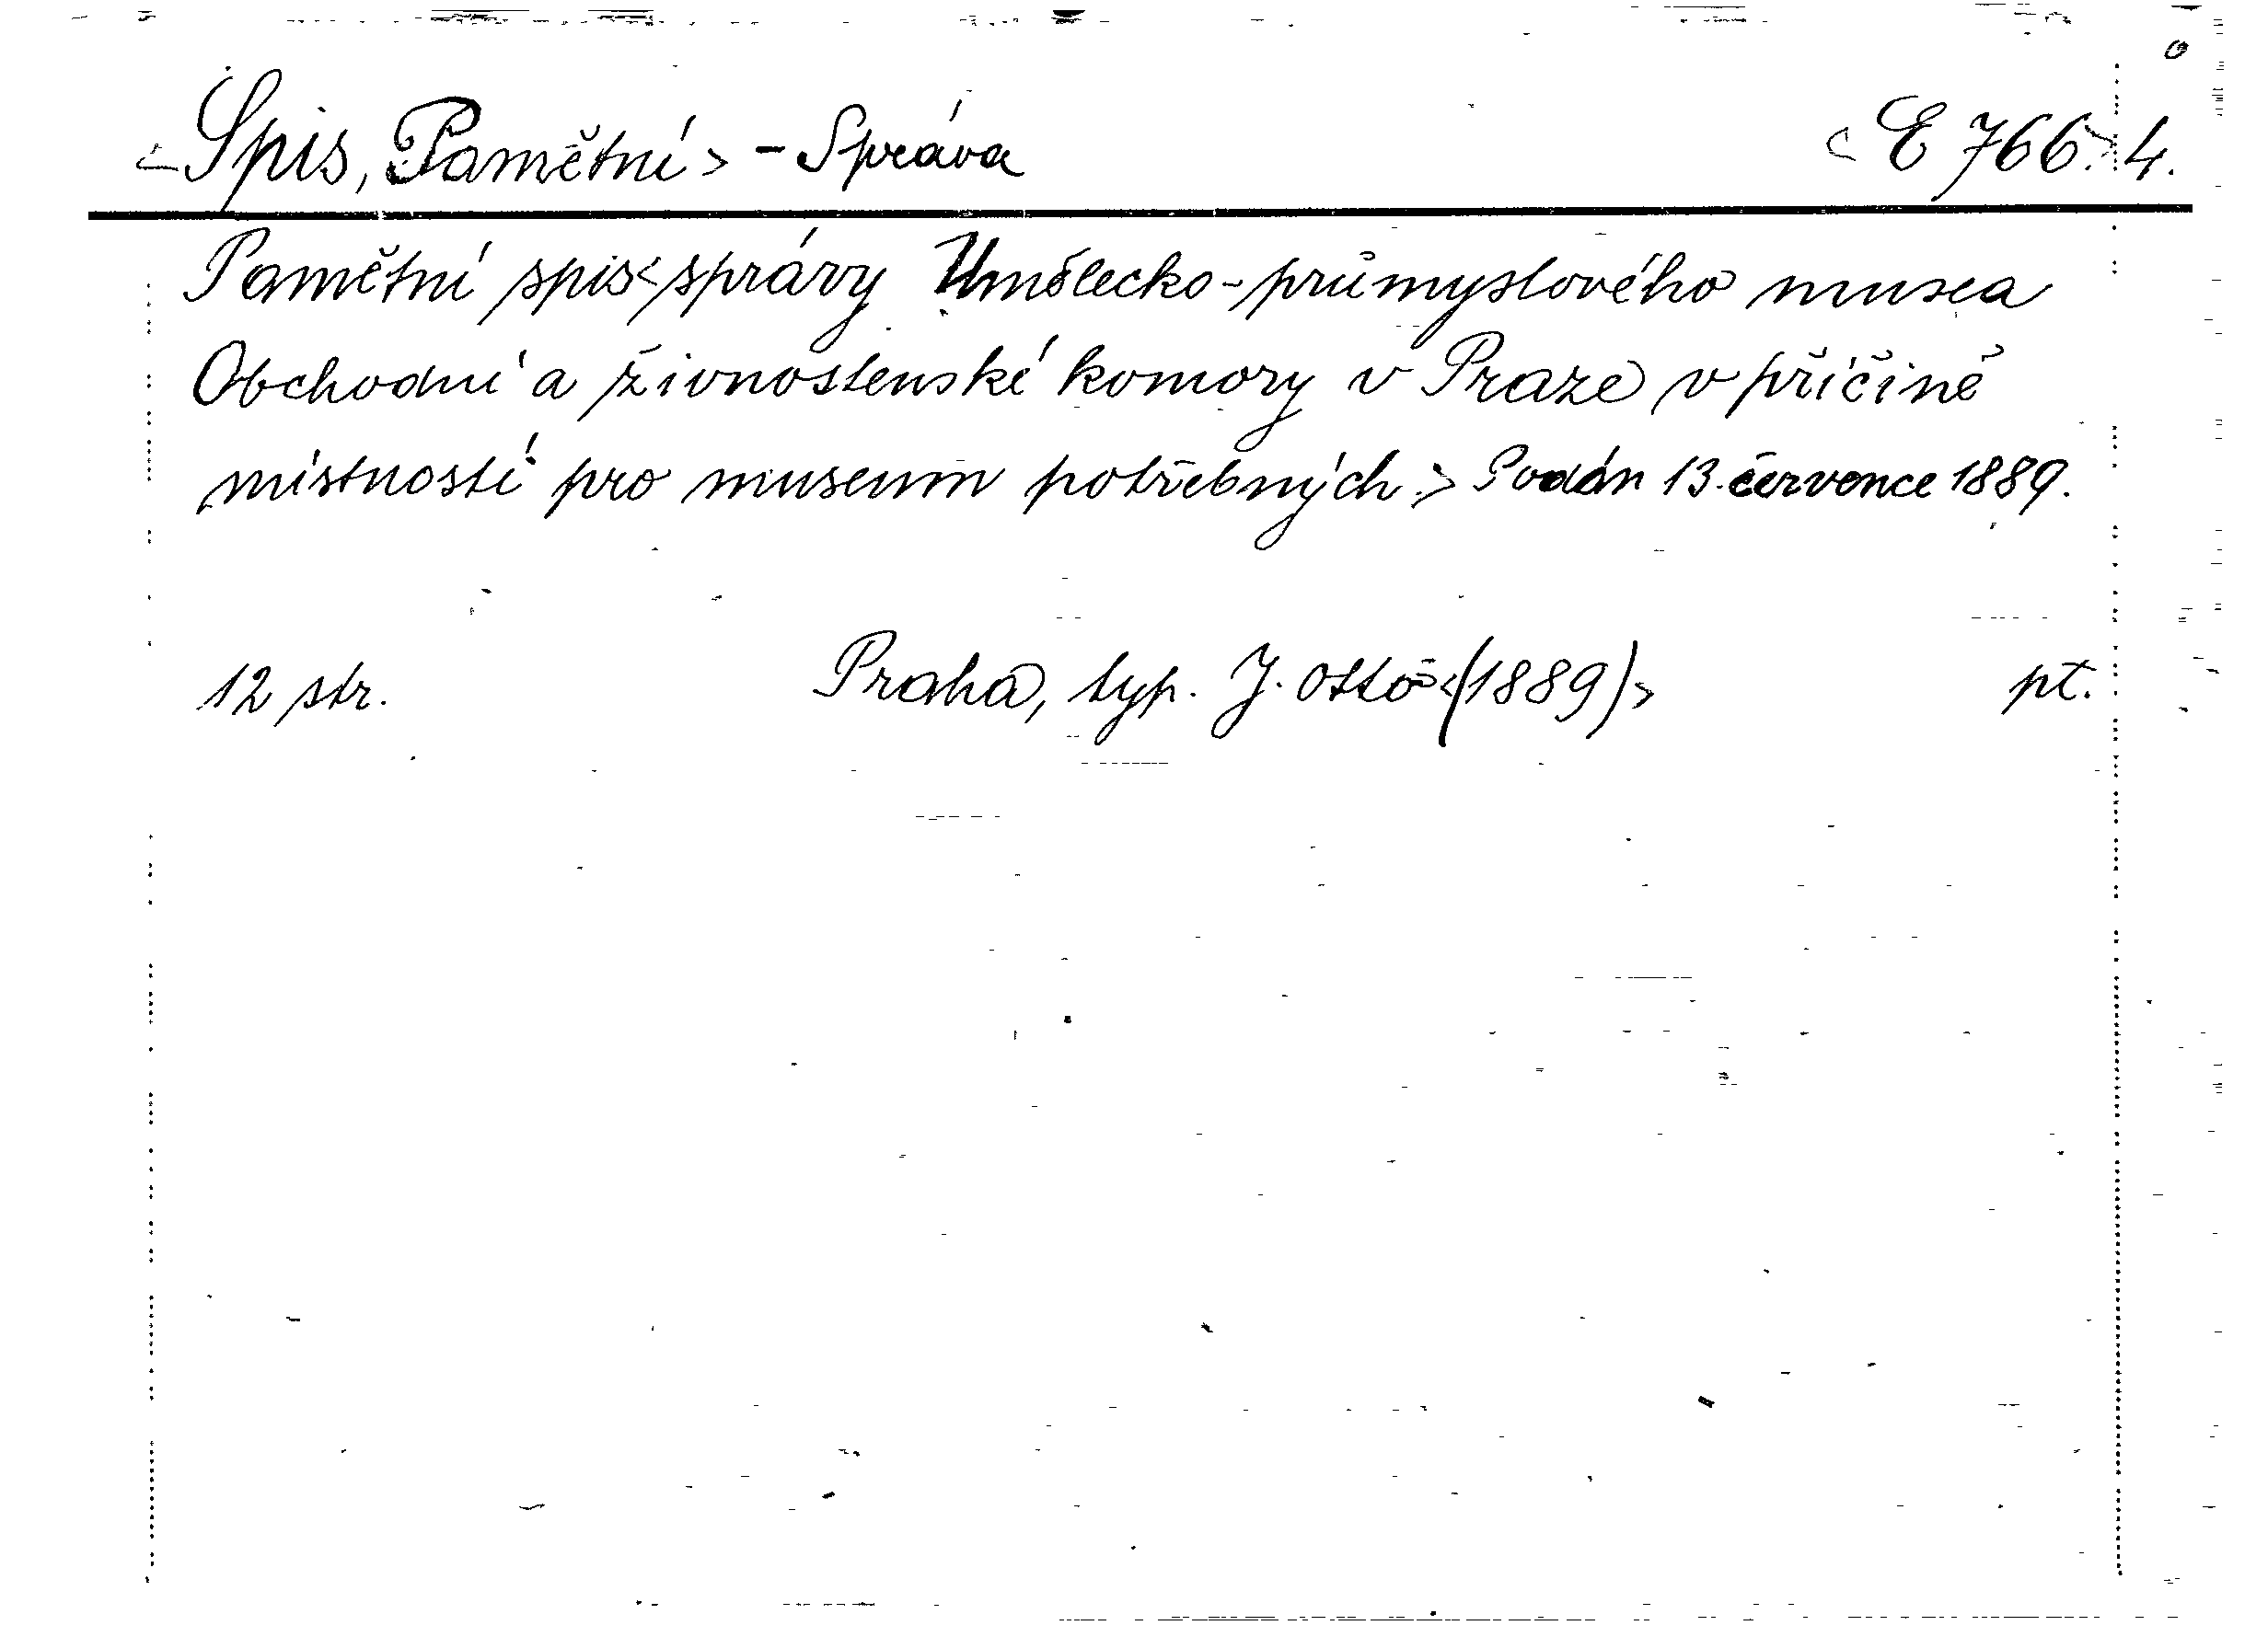 <Spis, Pamětní> - Správa <E 766.>4.
Pamětní spis <správy Umělecko-průmyslového musea
Obchodní a živnostenské komory v Praze v příčině
místností pro museum potřebných.> Podán 13. července 1889.
12 str. Praha, typ. J. Otto <(1889)> pt.